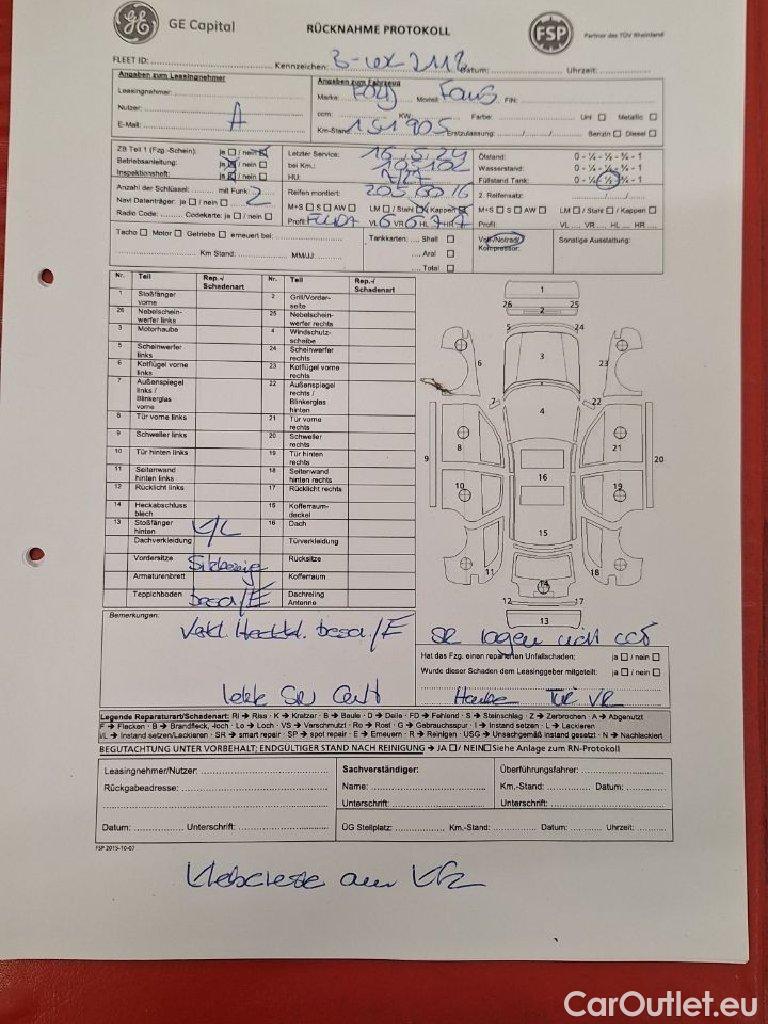 GE Capital
RÜCKNAHME PROTOKOLL
FSP
Partner des TÜV Rheinland
FLEET ID: Kennzeichen: Datum: Uhrzeit:
Angaben zum Leasingnehmer
Angaben zum Fahrzeug
Leasingnehmer:
Marke: Ford Modell: FIN:
Nutzer: A
ccm: KW: Farbe: Uni Metallic
E-Mail:
Km-Stand: 151905 Erstzulassung: Benzin Diesel
ZB Teil 1 (Fzg.-Schein): ja / nein
Betriebsanleitung: ja / nein
Inspektionsheft: ja / nein
Letzter Service: 16.5.24
bei Km.:
HU:
Ölstand: 0 - ¼ - ½ - ¾ - 1
Wasserstand: 0 - ¼ - ½ - ¾ - 1
Füllstand Tank: 0 - ¼ - ½ - ¾ - 1
Anzahl der Schlüssel: mit Funk: 2
Navi Datenträger: ja / nein
Radio Code: Codekarte: ja / nein
Reifen montiert: 205 60 16
M+S S AW LM / Stahl / Kappen
Profil: FULDA VL 6 VR 6 HL 7 HR 7
2. Reifensatz:
M+S S AW LM / Stahl / Kappen
Profil: VL VR HL HR
Tacho Motor Getriebe erneuert bei:
Km Stand: MM/JJ:
Tankkarten: Shell
Aral
Total
Voll-/Notrad/
Kompressor:
Sonstige Ausstattung:
Nr. Teil Rep.-/ Schadenart Nr. Teil Rep.-/ Schadenart
1 Stoßfänger vorne 2 Grill/Vorder-seite
26 Nebelschein-werfer links 25 Nebelschein-werfer rechts
3 Motorhaube 4 Windschutz-scheibe
5 Scheinwerfer links 24 Scheinwerfer rechts
6 Kotflügel vorne links 23 Kotflügel vorne rechts
7 Außenspiegel links / Blinkerglas vorne 22 Außenspiegel rechts / Blinkerglas hinten
8 Tür vorne links 21 Tür vorne rechts
9 Schweller links 20 Schweller rechts
10 Tür hinten links 19 Tür hinten rechts
11 Seitenwand hinten links 18 Seitenwand hinten rechts
12 Rücklicht links 17 Rücklicht rechts
14 Heckabschluss blech 15 Kofferraum-deckel
13 Stoßfänger hinten K/L 16 Dach
Dachverkleidung Türverkleidung
Vordersitze Rücksitze
Armaturenbrett Kofferraum
Teppichboden besch/E Dachreling Antenne
1
26 25
2
5 24
6 3 23
7 22
4
8 21
9 20
16
10 19
15
11 18
14
12 17
13
Bemerkungen:
Hat das Fzg. einen reparierten Unfallschaden: ja / nein
Wurde dieser Schaden dem Leasinggeber mitgeteilt: ja / nein
Haube Tür VR
Legende Reparaturart/Schadenart: RI → Riss · K → Kratzer · B → Beule · D → Delle · FD → Fehlend · S → Steinschlag · Z → Zerbrochen · A → Abgenutzt
F → Flecken · B → Brandfleck, -loch · Lo → Loch · VS → Verschmutzt · Ro → Rost · G → Gebrauchsspur · I → Instand setzen · L → Lackieren
I/L → Instand setzen/Lackieren · SR → smart repair · SP → spot repair · E → Erneuern · R → Reinigen · USG → Unsachgemäß instand gesetzt · N → Nachlackiert
BEGUTACHTUNG UNTER VORBEHALT; ENDGÜLTIGER STAND NACH REINIGUNG → JA / NEIN Siehe Anlage zum RN-Protokoll
Leasingnehmer/Nutzer:
Rückgabeadresse:
Datum: Unterschrift:
Sachverständiger:
Name:
Unterschrift:
Überführungsfahrer:
Km.-Stand: Datum:
Unterschrift:
ÜG Stellplatz: Km.-Stand: Datum: Uhrzeit:
FSP 2015-10-07
Klebereste am Kfz
CarOutlet.eu